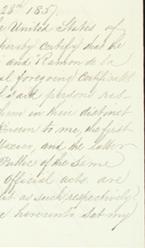 28th 185
United States of
hereby certify that the
and Ramon de la
foregoing Certificate
are persons res-
in their distinct
known to me, the first
and the latter
Public of the Same
Official acts are
as such respectively
hereunto set my